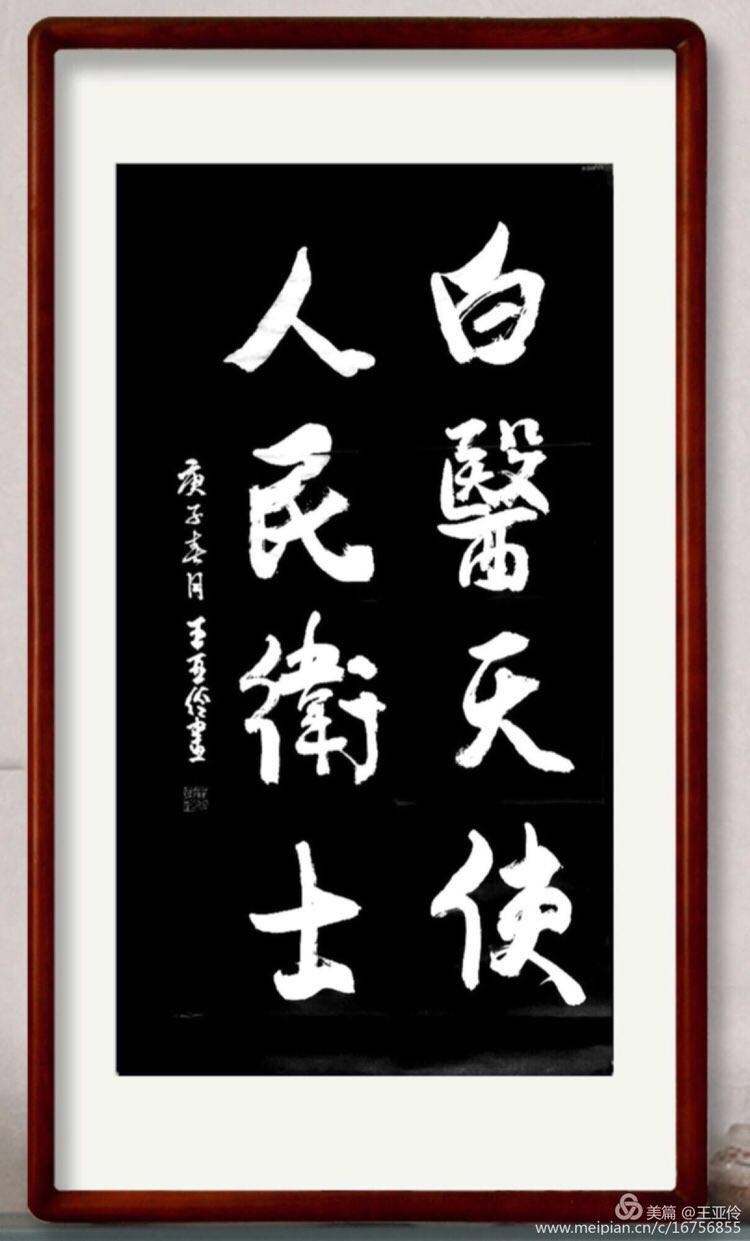 白醫天使
人民衛士
庚子春月 王亚伶書
美篇 @王亚伶
www.meipian.cn/c/16756855